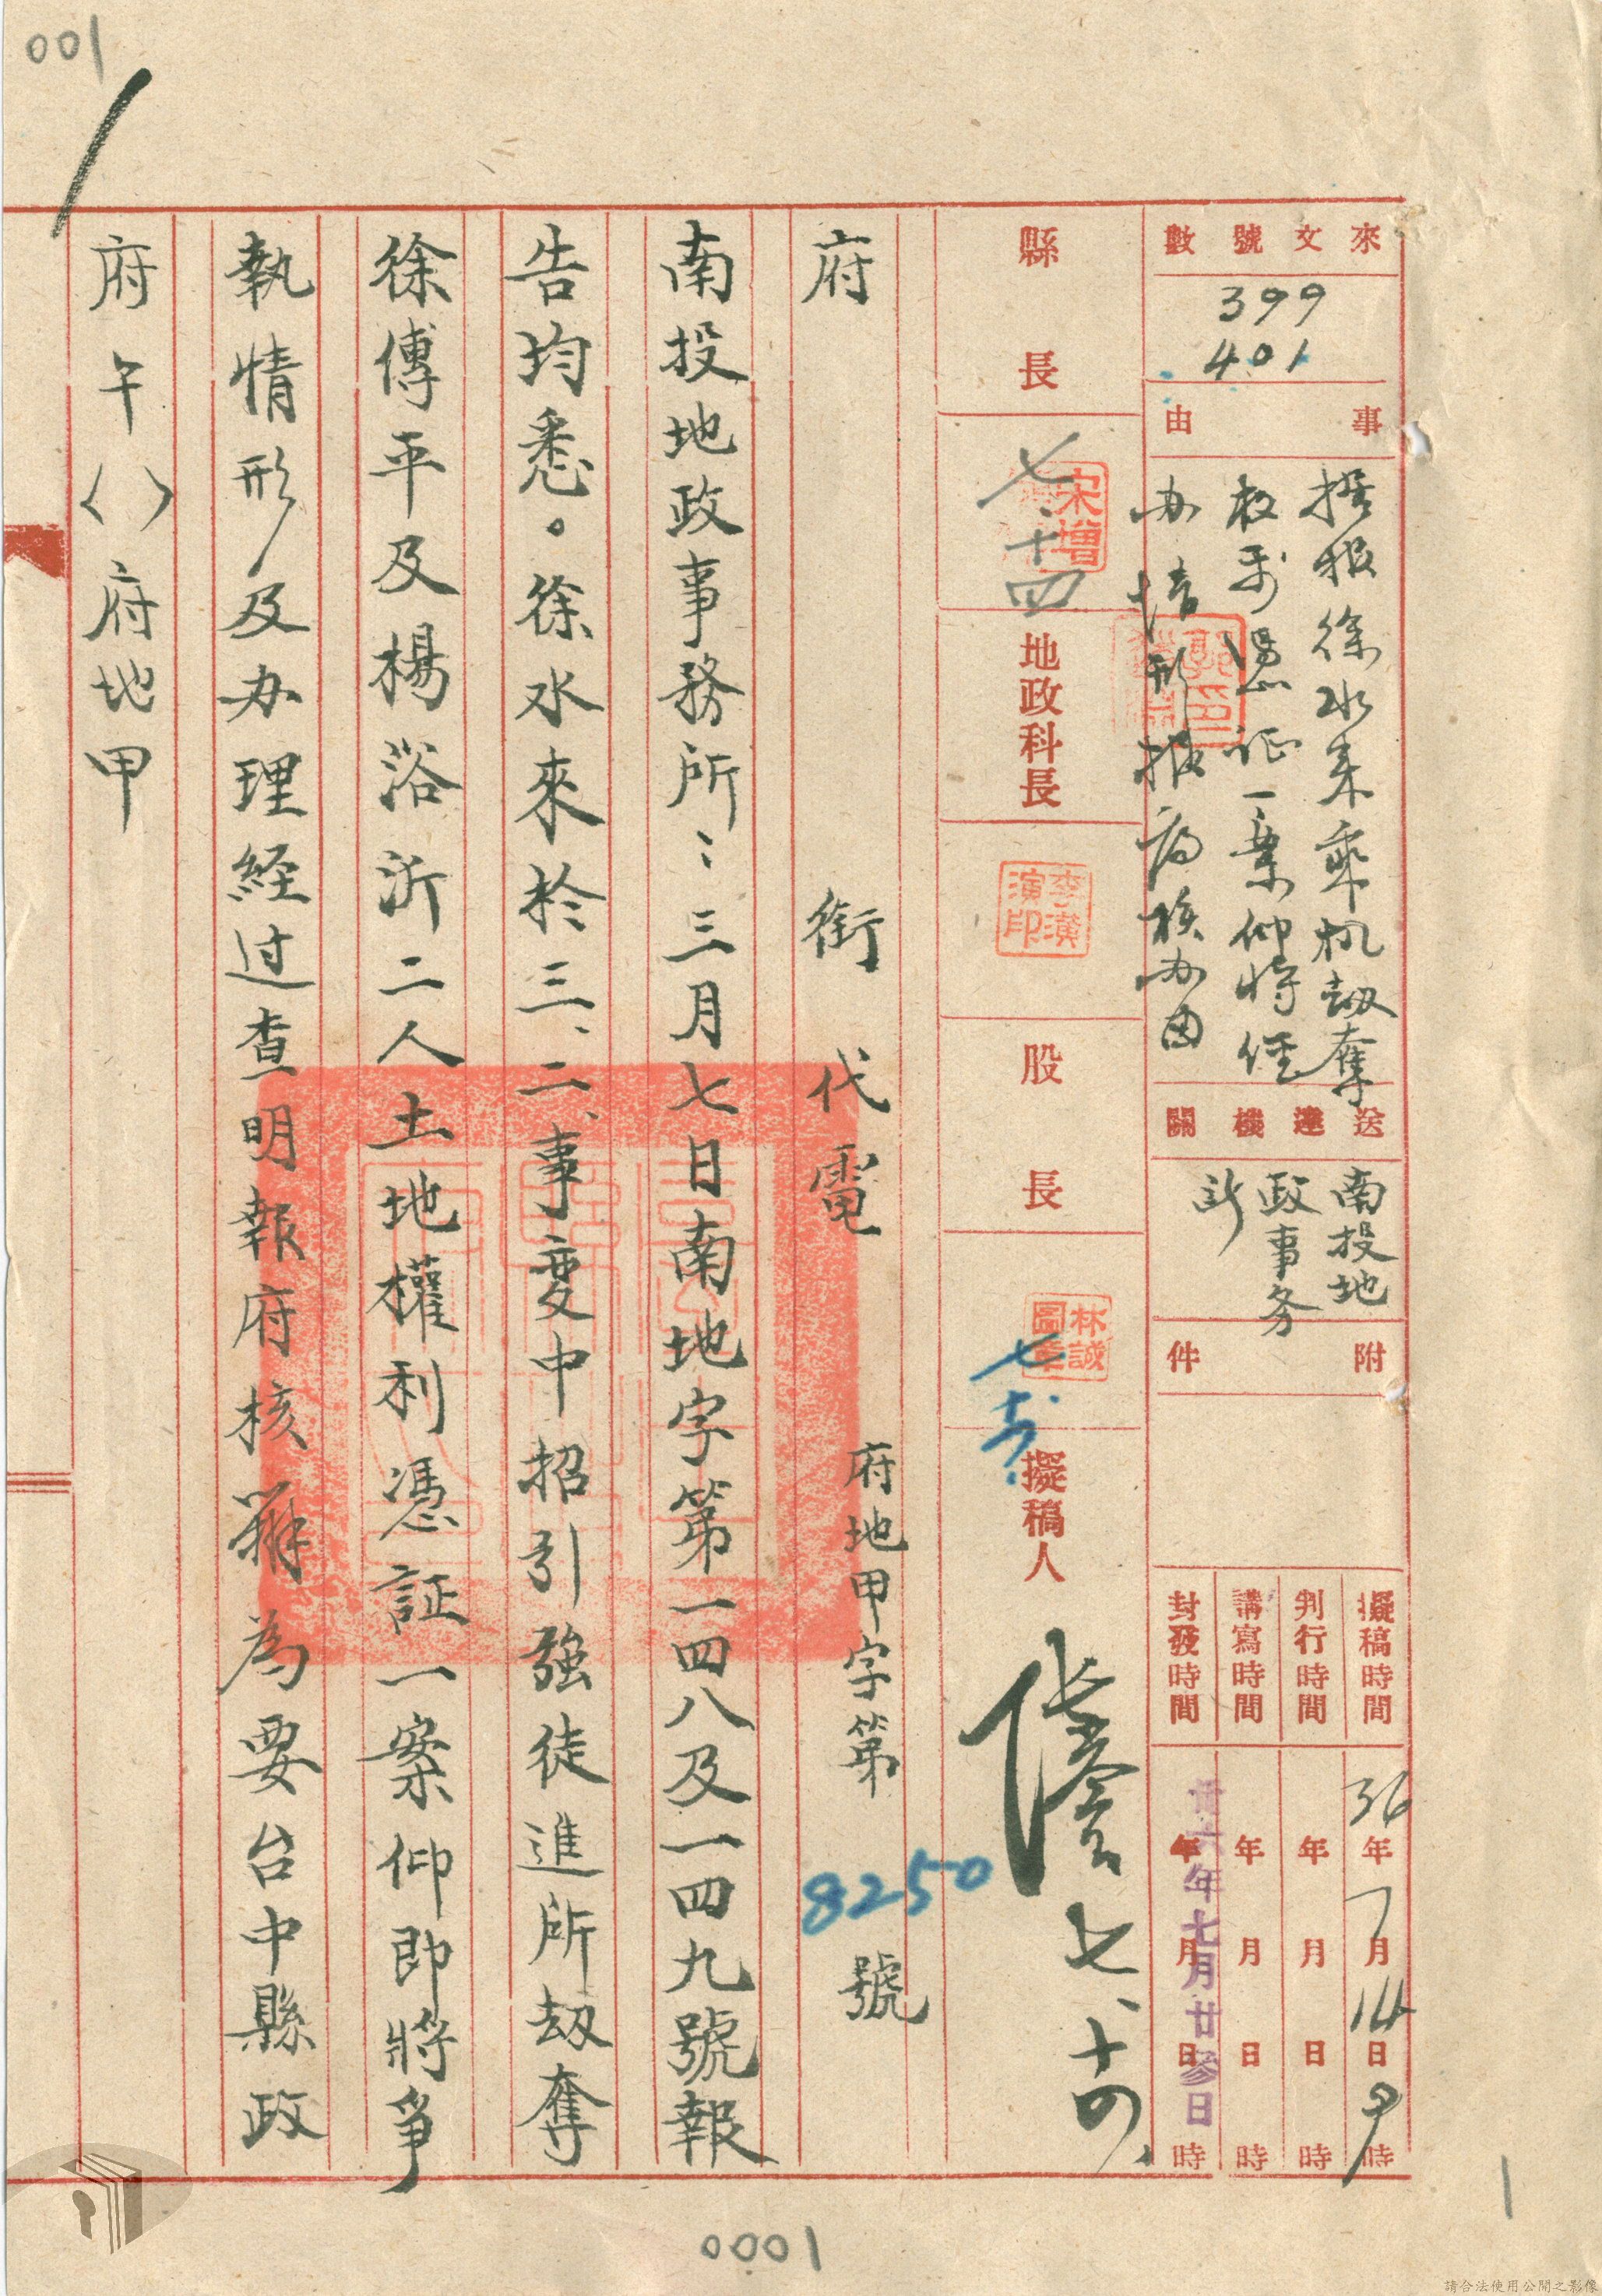 001
來文號數
399
401
事由
据报徐水来乘机劫奪
权利憑证一案仰将經
办情形报府核办由
送達機關
南投地
政事务
所
附件
擬稿時間
36年7月14日9時
判行時間
年月日時
講寫時間
年月日時
封發時間
年月日時
卅六年七月廿參日
縣長
宋增
七、十四
地政科長
李漢
演印
股長
林誠
圖章
擬稿人
七、十四、
府銜代電
府地甲字第8250號
南投地政事務所：三月七日南地字第一四八及一四九號報
告均悉。徐水來於三、二、事变中招引強徒進所刼奪
徐傳平及楊浴沂二人土地權利憑証一案仰即將爭
執情形及办理経过查明報府核辦為要台中縣政
府午〈〉府地甲
0001
1
請合法使用公開之影像